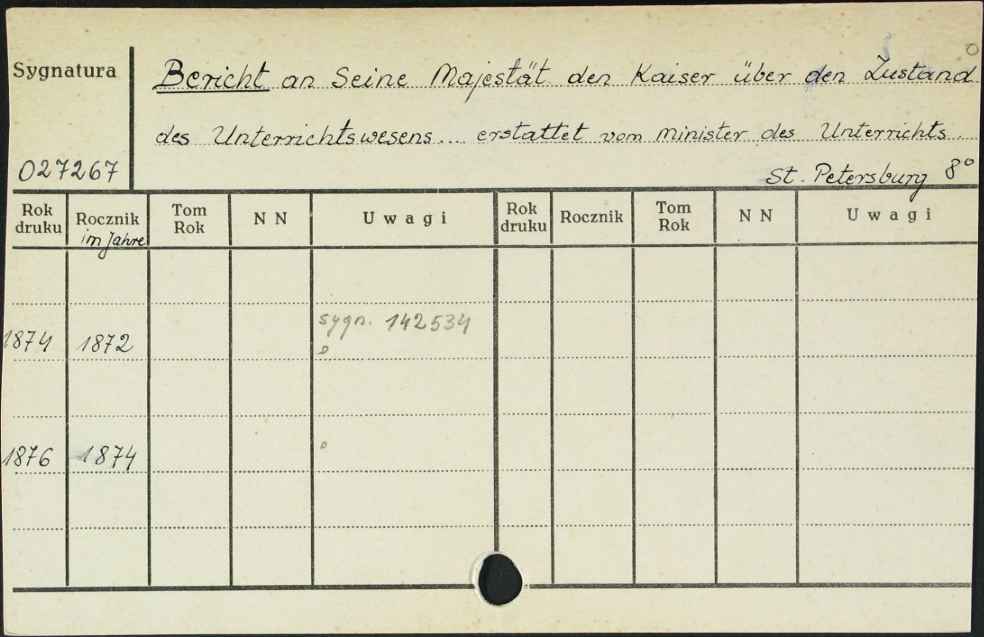 Sygnatura
Bericht an Seine Majestät den Kaiser über den Zustand
des Unterrichtswesens... erstattet vom minister des Unterrichts.
027267
St. Petersburg 8°
Rok druku Rocznik im Jahre Tom Rok NN Uwagi Rok druku Rocznik Tom Rok NN Uwagi
sygn. 142534
1874 1872
1876 1874